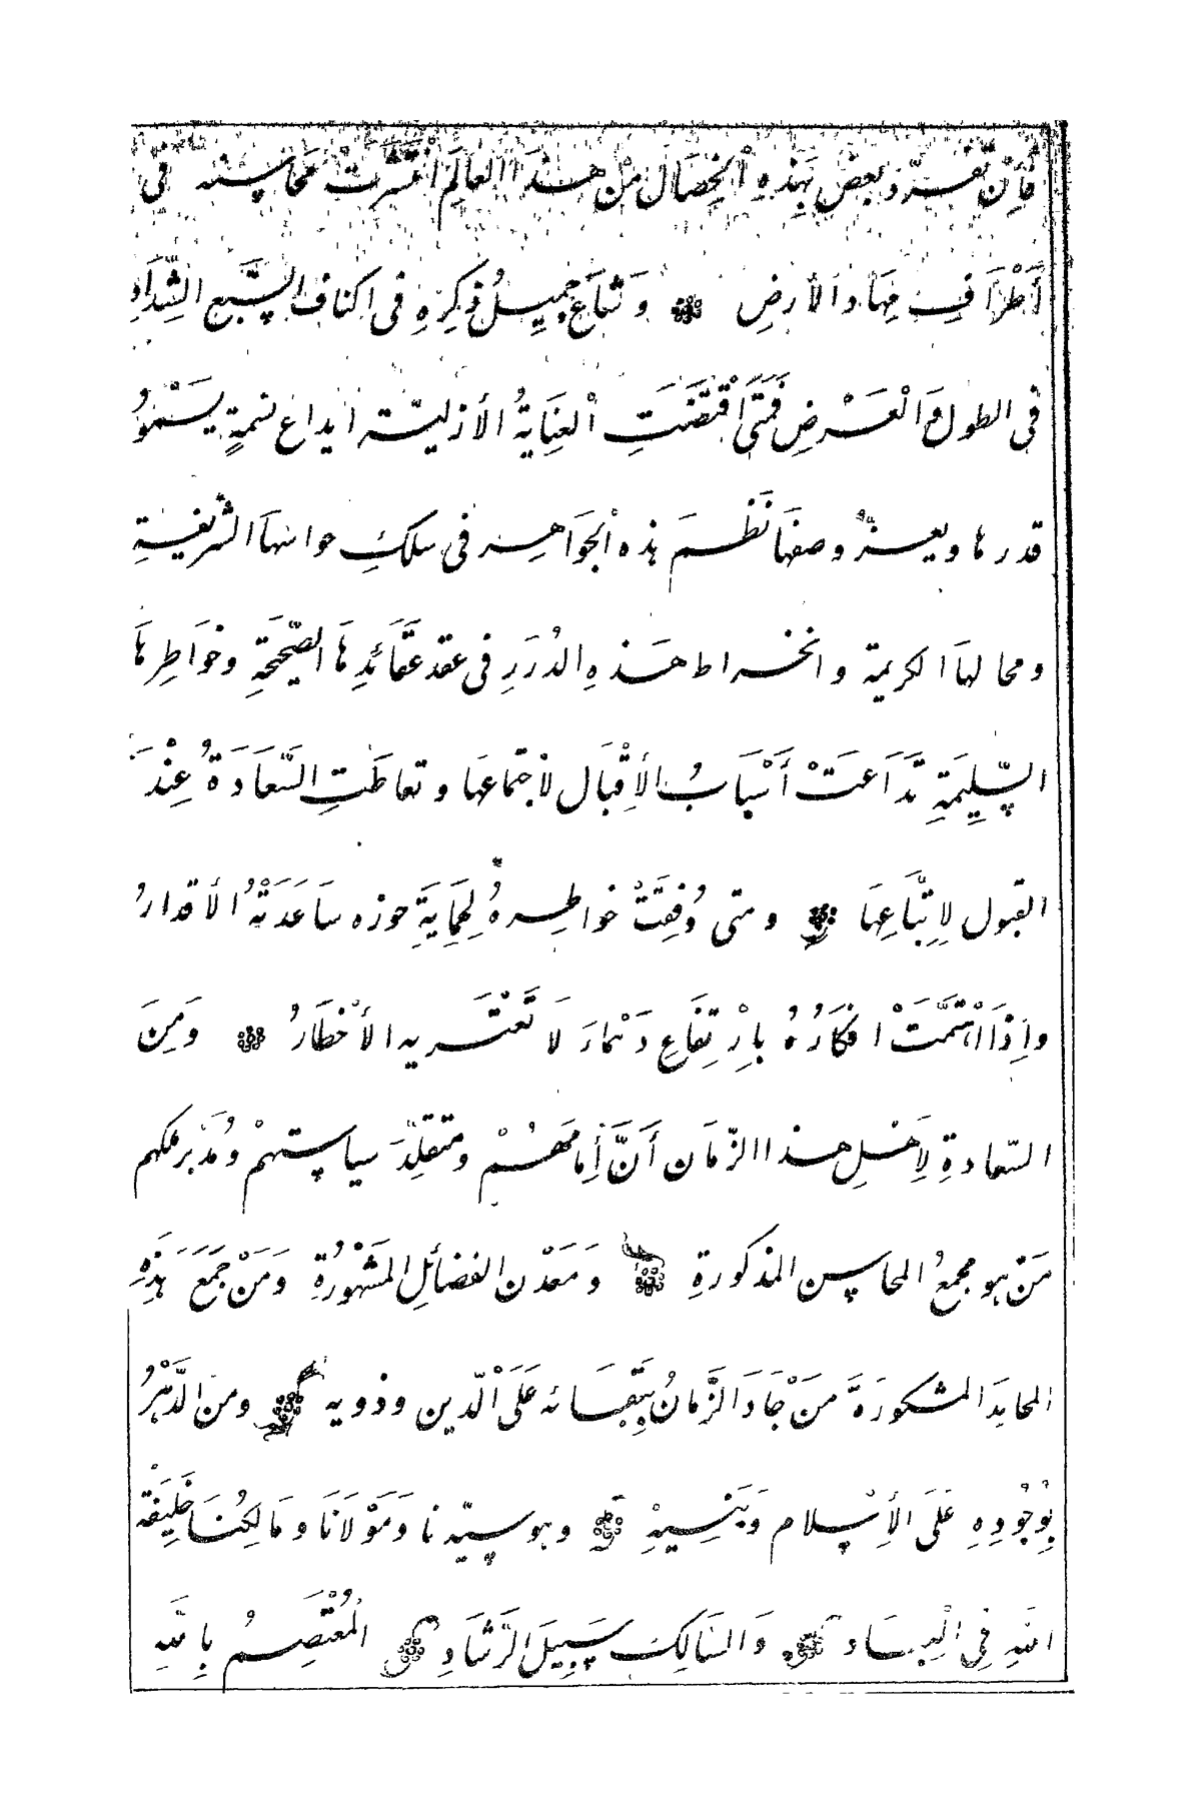 فَإِنْ تَفَرَّدَ بَعْضٌ بِهَذِهِ الْخِصَالِ مِنْ هذا العالَمِ انْتَشَرَتْ مَحَاسِنُه فى
أَطْرَافِ مِهَادِ الأرضِ ۞ وَشَاعَ جَمِيلُ ذِكرِهِ فى اكناف السَّبع الشِّدَادِ
فى الطول وَالْعَرْضِ فَمَتَى اقْتَضَتِ الْعِنَايَةُ الأزليّة ايداع نسمةٍ يَسْمُو
قدرها ويعزّ وصفها نَظْمَ هذه الْجَوَاهِر فى سلكِ حواسّها الشريفةِ
ومحالها الكريمة وانخراط هَذهِ الدُرَرِ فى عقد عَقَائِدِهَا الصّحيحَةِ وخوَاطِرِهَا
السَّلِيمَةِ تَدَاعَتْ أَسْبَابُ الأِقْبَال لاجتماعها وتعاطَتِ السَّعَادَةُ عِنْدَ
القبول لاِتِّبَاعِهَا ۞ ومتى وُفِقَتْ خواطرهُ لِحِمَايَةِ حوزه سَاعَدَتْهُ الأقدارُ
واِذَا اهْتَمَّتْ افكارُهُ بِارْتِفَاعِ دَمَارَ لَا تَعْتَريه الأخْطَارُ ۞ وَمِنَ
السّعادةِ لِأَهْلِ هذا الزّمَان أَنَّ أِمَامَهُمْ ومتقلِّدَ سياستهمْ وَمُدَبّر ملكهم
مَنْ هو مجمعُ المحاسن المذكورةِ ۞ وَمَعَدْن الفضَائلِ المَشْهُورَةِ وَمَنْ جَمَعَ هَذِهِ
المحامِدَ المشكورَةَ مَنْ جَادَ الزَّمانُ بِبَقَائه عَلَى الّدين وذويه ۞ ومن الدَّهْرُ
بِوُجُودِهِ عَلَى الأِسْلام وَبَنِيهِ ۞ وهو سيّدنا وَمَوْلَانَا وَمَالِكُنَا خَلِيفَة
اللهِ فِى الْعِبَاد ۞ وَالسَالِك سَبِيلَ الرَشَادِ ۞ الْمُعْتَصِمُ بِاللهِ